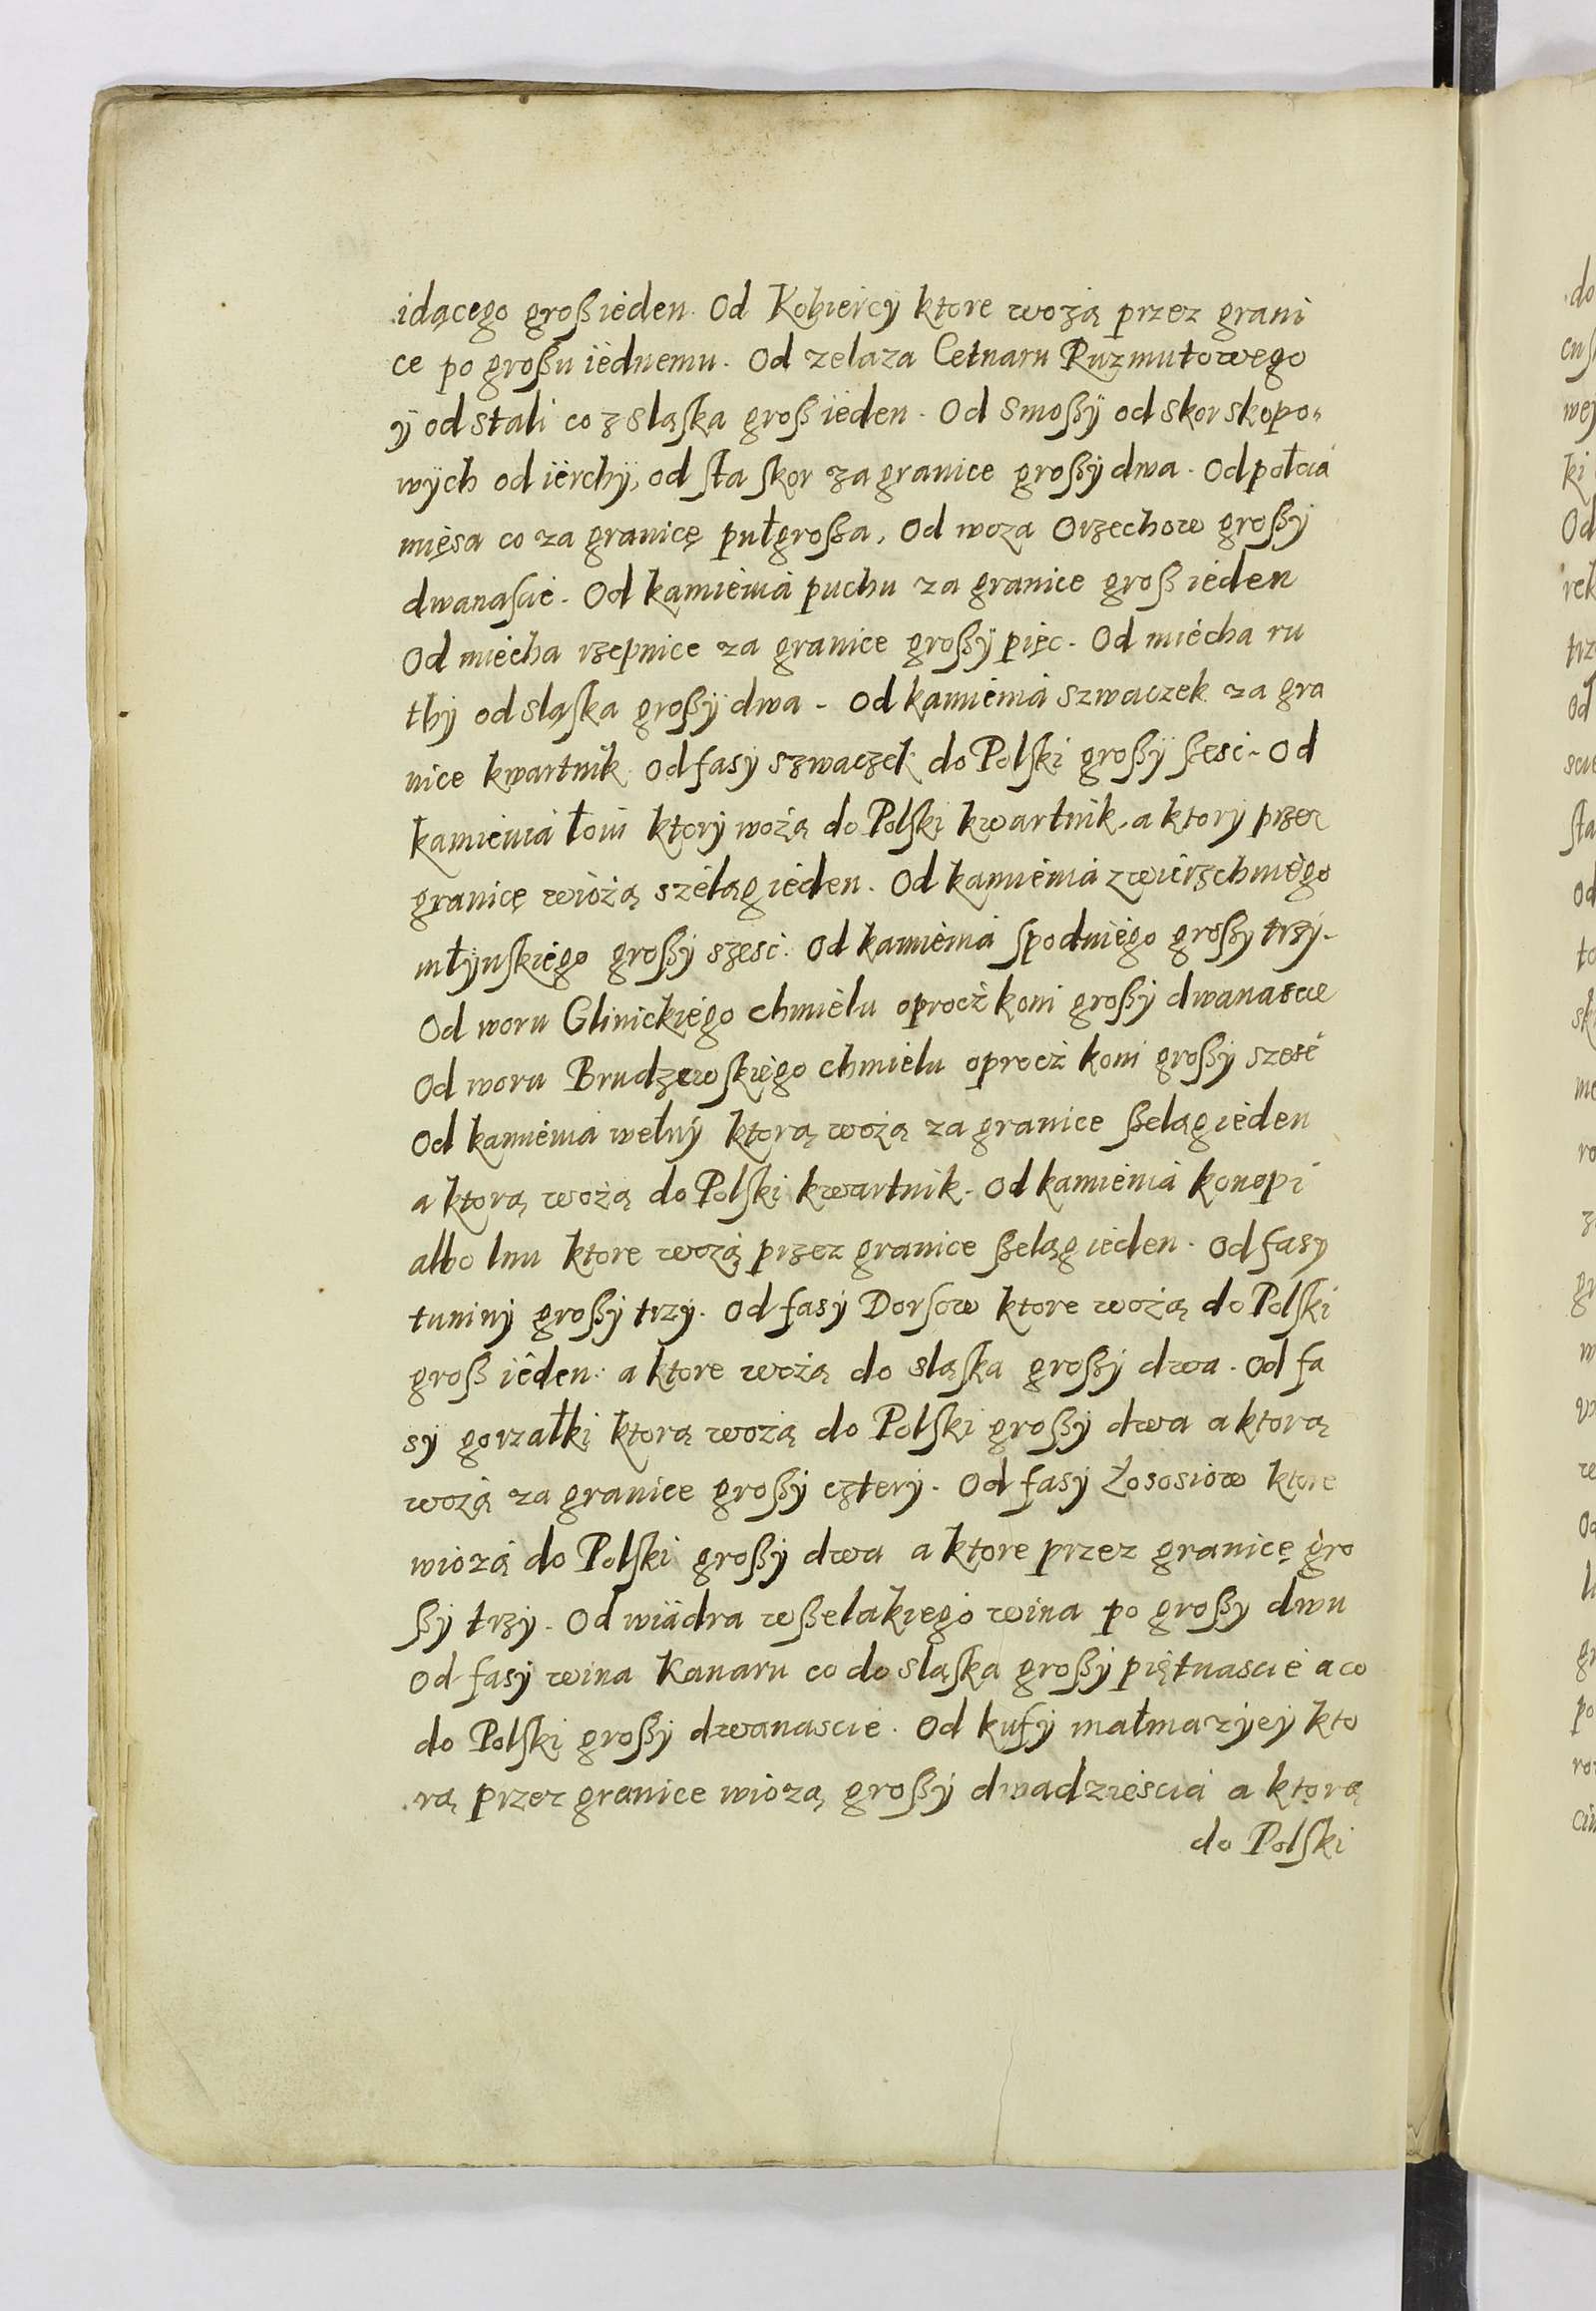 idącego groß ieden. Od Kobiercÿ ktore wożą przez grani
ce po großu iednemu. Od zelaza Cetnaru Ruzmutowego
ÿ od stali co z sląska groß ieden. Od Smoßÿ od skor skopo„
wÿch od ierchÿ, od sta skor za granice großÿ dwa. Od połcia
mięsa co za granicę pułgroßa, Od woza Orzechow großÿ
dwanascie. Od kamienia puchu za granice groß ieden
Od miecha rzepnice za granice großÿ pięc. Od miecha ru
thÿ od sląska großÿ dwa. Od kamienia szwaczek za gra
nice kwartnik Od fasÿ szwaczek do Polski großÿ ßesci. Od
kamienia łoiu ktorÿ wożą do Polski kwartnik, a ktorÿ przez
granicę wiożą szelągieden. Od kamienia zwierzchniego
młÿnskiego großÿ szesci. Od kamienia spodniego großÿ trzÿ.
Od woru Glinickiego chmielu oprocż koni großÿ dwanascie
Od woru Brudzewskiego chmielu oprocż koni großÿ szesć
Od kamienia wełnÿ ktorą wożą za granice ßelągieden
a ktorą wożą do Polski kwartnik. Od kamienia konopi
albo lnu ktore wożą przez granice ßeląg ieden. Od fasÿ
tuninÿ großÿ trzÿ. Od fasÿ Dorsow ktore wożą do Polski
groß ieden: a ktore wożą do sląska großÿ dwa. Od fa
sÿ gorzałki ktorą wożą do Polski großÿ dwa a ktorą
wożą za granice großÿ czterÿ. Od fasÿ Łososiow ktore
wiozą do Polski großÿ dwa a ktore przez granicę gro
ßÿ trzÿ. Od wiadra wßelakiego wina po großÿ dwu
Od fasÿ wina Kanaru co do sląska großÿ piętnascie a co
do Polski großÿ dwanascie. Od kufÿ małmazÿeÿ kto
rą przez granice wiozą großÿ dwadzieścia a ktorą
do Polski